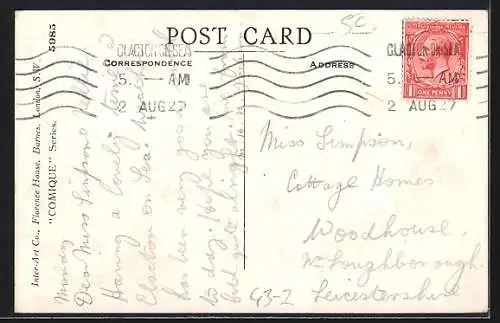 5985
Inter-Art Co., Florence House, Barnes, London, S.W.
"COMIQUE" Series.
POST CARD
CORRESPONDENCE
ADDRESS
CLACTON ON SEA
5. — AM
2 AUG 27
CLACTON ON SEA
5. — AM
2 AUG 27
ONE PENNY
Monday
Dear Miss Simpson &
Having a lovely time
Clacton on Sea.
has been very good
to day. Hope you are
feel quite alright
Miss Simpson,
Cottage Homes
Woodhouse,
Nr Loughborough.
Leicestershire
43-2